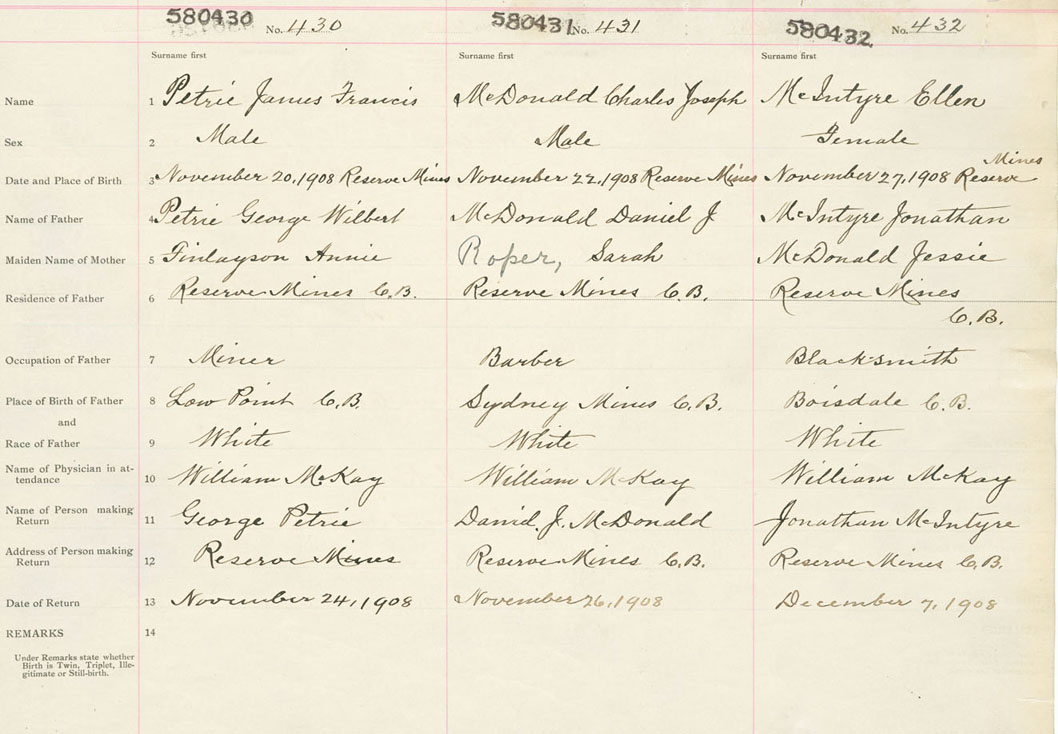 580430 No. 430 580431 No. 431 580432 No. 432
Surname first Surname first Surname first
Name 1 Petrie James Francis McDonald Charles Joseph McIntyre Ellen
Sex 2 Male Male Female
Mines
Date and Place of Birth 3 November 20, 1908 Reserve Mines November 22, 1908 Reserve Mines November 27, 1908 Reserve
Name of Father 4 Petrie George Wilbert McDonald Daniel J McIntyre Jonathan
Maiden Name of Mother 5 Finlayson Annie Roper, Sarah McDonald Jessie
Residence of Father 6 Reserve Mines C.B. Reserve Mines C.B. Reserve Mines
C.B.
Occupation of Father 7 Miner Barber Blacksmith
Place of Birth of Father 8 Low Point C.B. Sydney Mines C.B. Boisdale C.B.
and
Race of Father 9 White White White
Name of Physician in at-
tendance 10 William McKay William McKay William McKay
Name of Person making
Return 11 George Petrie Daniel J. McDonald Jonathan McIntyre
Address of Person making
Return 12 Reserve Mines Reserve Mines C.B. Reserve Mines C.B.
Date of Return 13 November 24, 1908 November 26, 1908 December 7, 1908
REMARKS 14
Under Remarks state whether
Birth is Twin, Triplet, Ille-
gitimate or Still-birth.